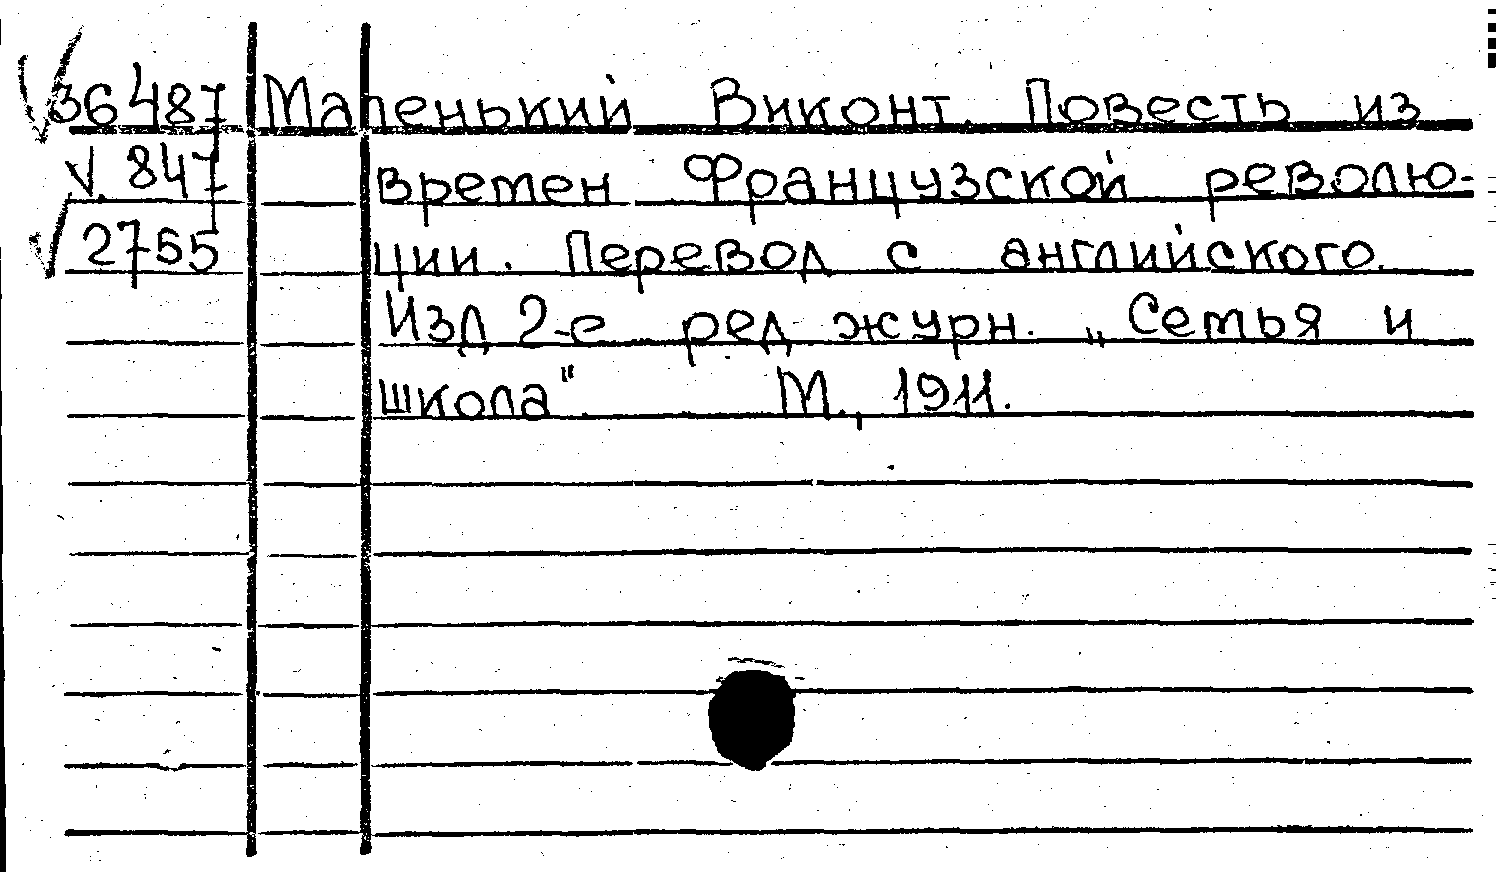 36487 Маленький Виконт. Повесть из
V. 847 времен Французской револю-
2755 ции. Перевод с английского.
Изд 2-е ред. журн. „Семья и
школа". М., 1911.